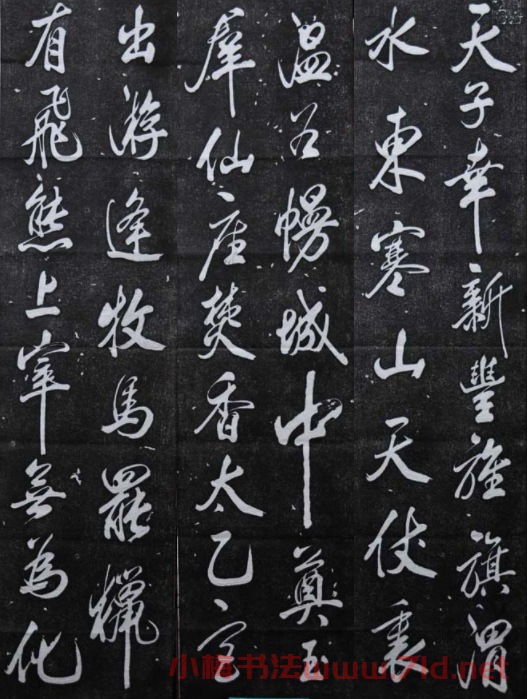 天子幸新豐旌旗渭
水東寒山天仗裏
温谷幔城中奠玉
羣仙座焚香太乙宮
出游逢牧馬罷獵
有飛熊上宰無為化
小楠书法www.7ld.net